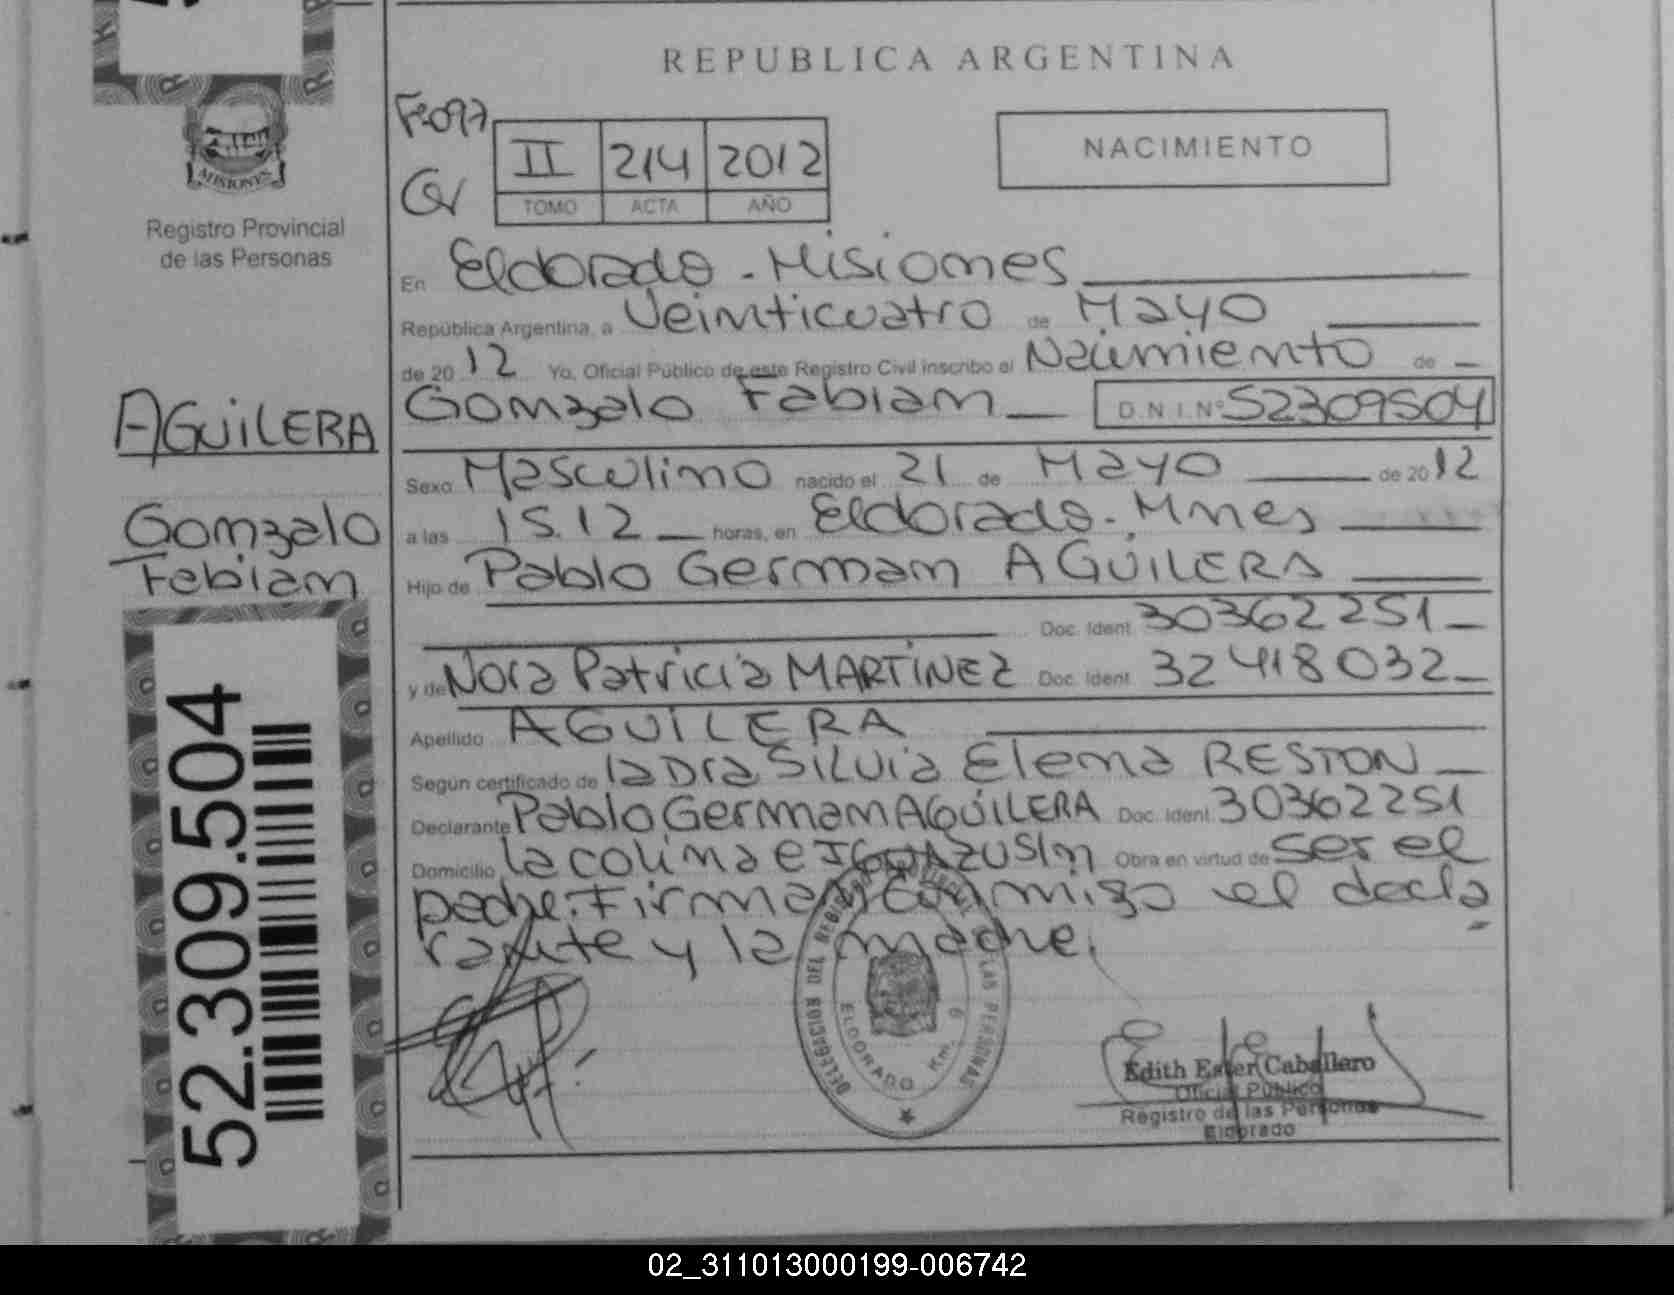 REPUBLICA ARGENTINA
NACIMIENTO
II 214 2012
TOMO ACTA AÑO
MISIONES
Registro Provincial
de las Personas
En Eldorado - Misiones
República Argentina, a Veinticuatro de Mayo
de 2012 Yo, Oficial Público de este Registro Civil inscribo el Nacimiento de
Gonzalo Fabian D.N.I.Nº 52309504
AGUILERA
Gonzalo
Fabian
Sexo Masculino nacido el 21 de Mayo de 2012
a las 15.12 horas, en Eldorado - Mnes
Hijo de Pablo German AGUILERA
Doc. Ident. 30362251
y de Nora Patricia MARTINEZ Doc. Ident. 32418032
Apellido AGUILERA
Según certificado de la Dra Silvia Elena RESTON
Declarante Pablo German AGUILERA Doc. Ident. 30362251
Domicilio la colina e IGUAZU S/n Obra en virtud de ser el
padre. Firman conmigo el decla
rante y la madre.
52.309.504
DELEGACION DEL REGISTRO PROVINCIAL DE LAS PERSONAS
ELDORADO Km. 9
Edith Ester Caballero
Oficial Público
Registro de las Personas
Eldorado
02_311013000199-006742